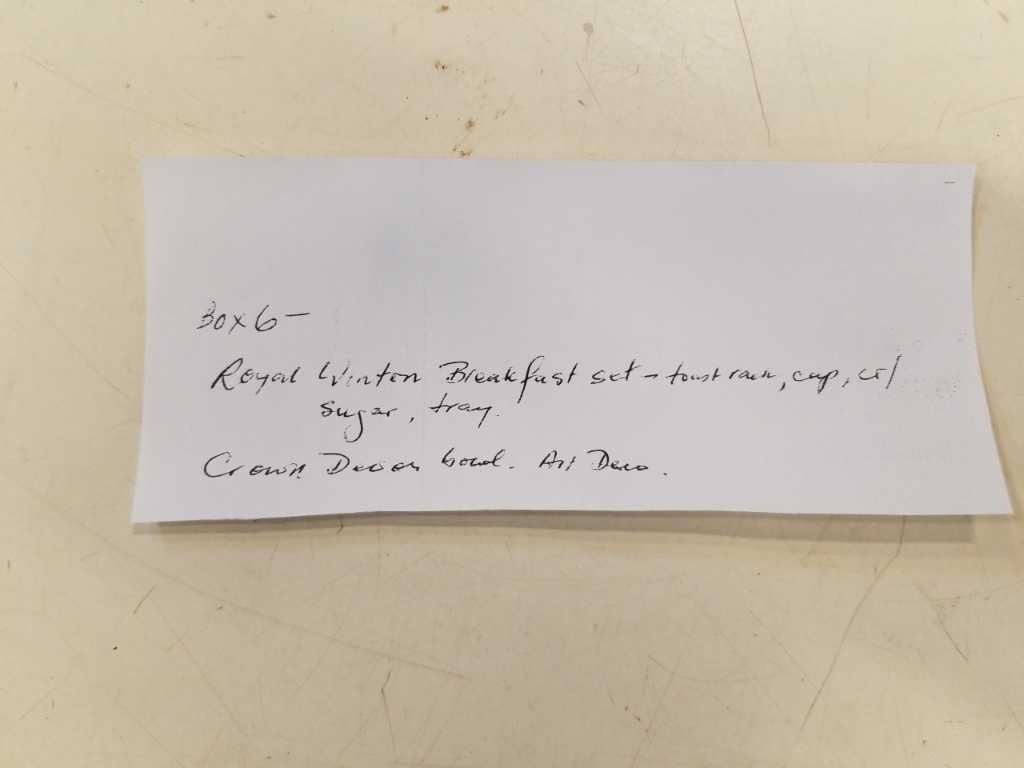 Box 6 -
Royal Winton Breakfast set - toast rack, cup, cr/
sugar, tray.
Crown Devon bowl. Art Deco.